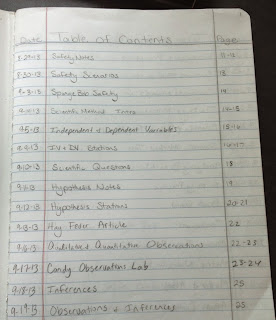 Date Table of Contents Page
8-29-13 Safety Notes 11-12
8-30-13 Safety Scenarios 13
9-3-13 Sponge Bob Safety 14
Scientific Method Intro
9-5-13 Independent & Dependent Variables 15-16
9-9-13 IV & DV Stations 16-17
9-10-13 Scientific Questions 18
9-11-13 Hypothesis Notes 19
9-12-13 Hypothesis Stations 20-21
9-13-13 Hay Fever Article 22
9-16-13 Qualitative & Quantitative Observations 22-23
9-17-13 Candy Observations Lab 23-24
9-18-13 Inferences 25
9-19-13 Observations & Inferences 25